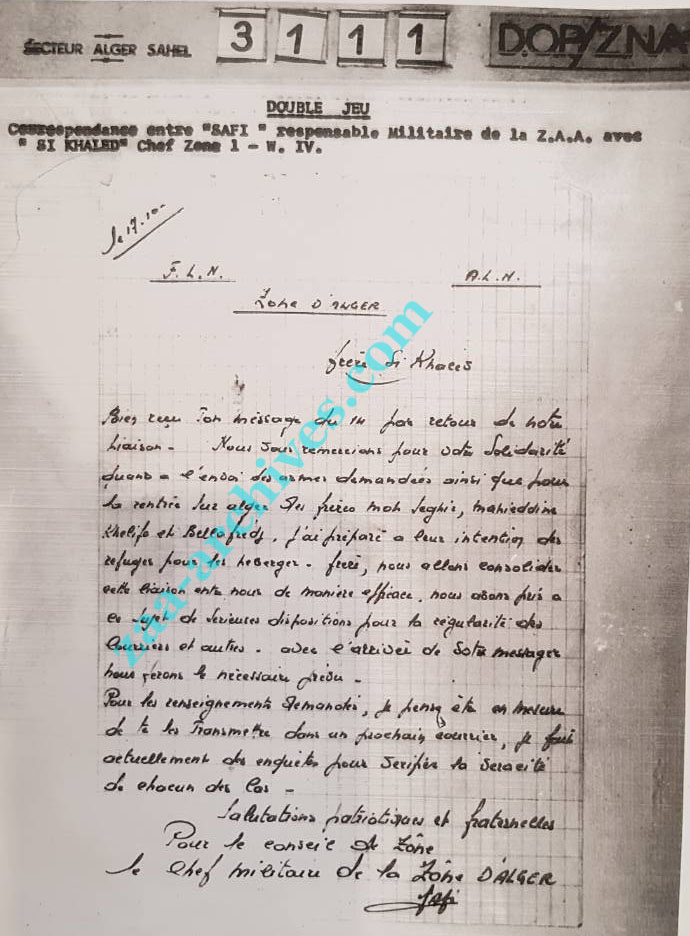 SECTEUR ALGER SAHEL
3 1 1 1
D.OP/ZNA
DOUBLE JEU
Correspendance entre "SAFI " responsable Militaire de la Z.A.A. avec
" SI KHALED" Chef Zone 1 - W. IV.
le 17.10-
F.L.N.
A.L.N.
Zône D'ALGER
frère Si Khaled
Bien reçu Ton méssage du 14 par retour de notre
liaison - Nous vous remercions pour votre Solidarité
quand a l'envoi des armes demandées ainsi que pour
la rentrée sur alger des frères moh Seghir, mahieddine
Khelifa et Bellafredj. J'ai préparé a leur intention des
refuges pour les héberger - frère, nous allons consolider
cette liaison entre nous de manière efficace, nous avons pris a
ce sujet de serieuses dispositions pour la régularité des
Courriers et autres - avec l'arrivée de votre messager
nous ferons le nécessaire prévu -
Pour les renseignements demandés, je pense être en mesure
de te les Transmettre dans un prochain courrier, je fais
actuellement des enquêtes pour verifier la veracité
de chacun des Cas -
Salutations patriotiques et fraternelles
Pour le conseil de Zône
le Chef militaire de la Zône D'ALGER
Safi
zaa-archives.com